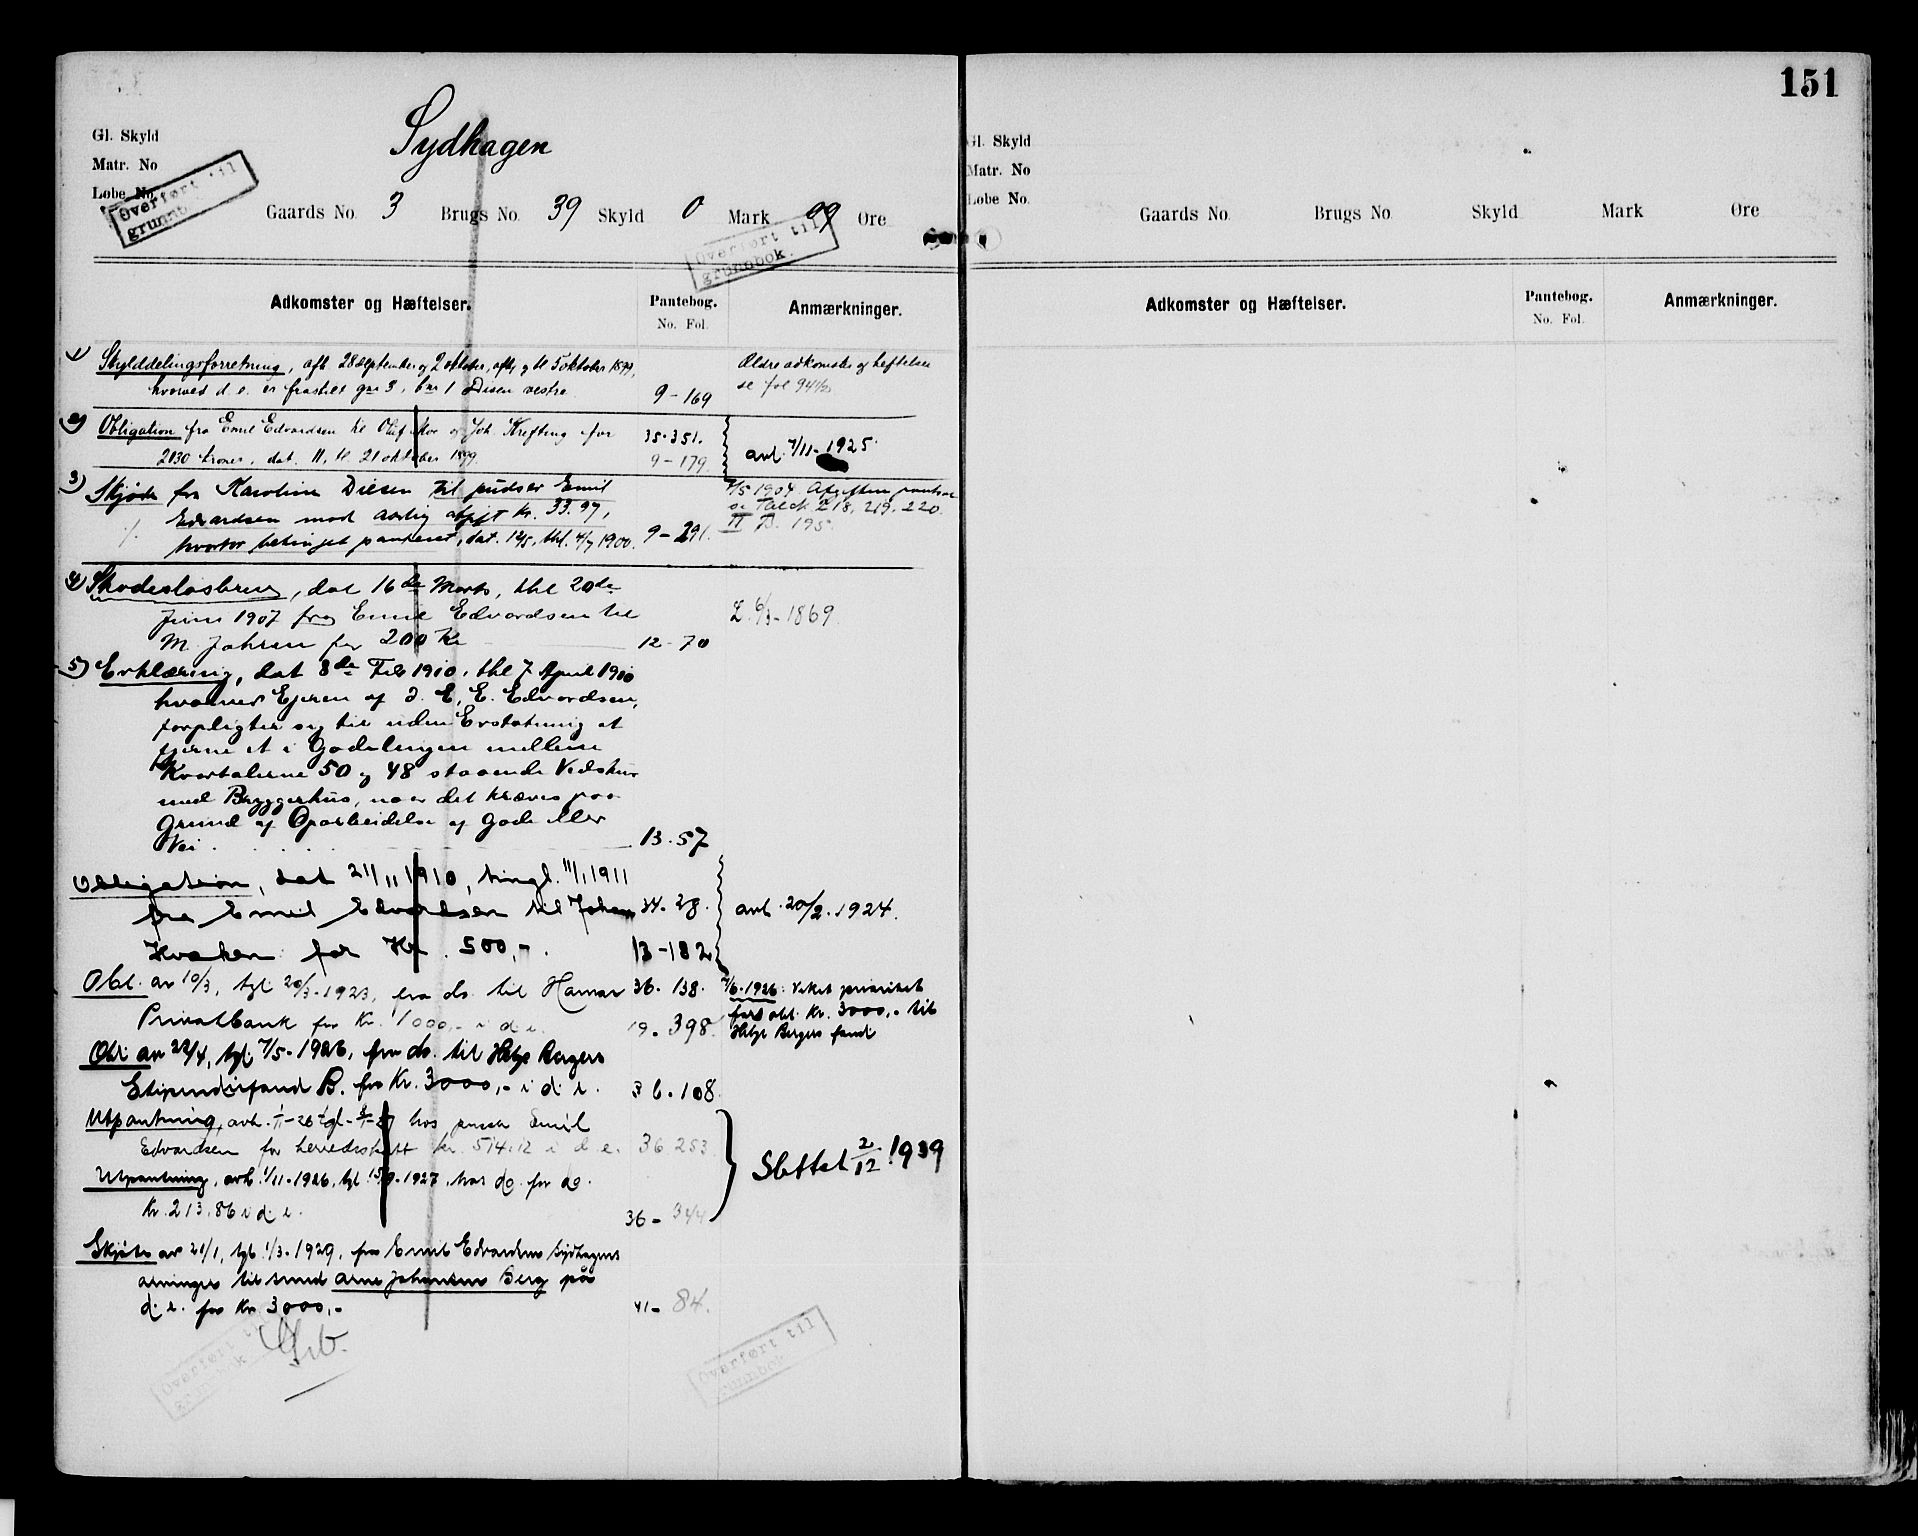 151
Sydhagen
Gl. Skyld
Matr. No
Løbe No.
Overført til
grunnbok
Gaards No. 3 Brugs No. 39 Skyld 0 Mark 09 Øre
Overført til
grunnbok.
Adkomster og Hæftelser.
Pantebog.
No. Fol.
Anmærkninger.
1) Skylddelingsforretning, afh 28 september og 2 oktober, tgl 5 oktober 1899,
hvorved d. e. er fraskilt gnr 3, bnr 1 Disen vestre 9-169
Ældre adkomster og heftelser
se fol 94
2) Obligation fra Emil Edvardsen til Oluf Moe og Joh. Krefting for 35-351.
2130 kroner, dat. 11, tl 21 oktober 1899. 9-179.
avl. 7/11-1925
3) Skjøde fra Karoline Disen til pudser Emil
Edvardsen mod aarlig afgift kr. 33.97,
hvorfor betinget panteret, dat. 12/5, thl. 4/7 1900. 9-291.
7/5 1904 Afgiften
218, 219, 220
195
4) Skadesløsbrev, dat 16de Marts, thl 20de
Juni 1907 fra Emil Edvardsen til
M. Johnsen for 200 Kr 12-70
6/3-1869.
5) Erklæring, dat 8de Feb 1910, thl 7 April 1910
hvorved Ejeren af d. E, E. Edvardsen,
forpligter sig til uden Erstatning at
fjerne et i Gadelinjen mellem
Kvartalerne 50 og 48 staaende Vedskur
med Bryggerhus, naar det kræves paa
Grund af Oparbeidelse af Gade eller
Vei. 13-57
Obligation, dat 21/11 1910, tingl. 11/1 1911
fra Emil Edvardsen til Johan 34-28.
for Kr. 500,-. 13-182
avl. 20/2-1924.
Obl. av 10/3, tgl. 20/3-1923, fra do. til Hamar 36-138.
Privatbank for Kr. 1000,- i d e. 19-398.
7/6-1926: Veket prioritet
for obl. kr. 3000,- til
Helge Bergers fond
Obl. av 22/4, tgl. 7/5-1926, fra do. til Helge Bergers
Stipendiefond B. for Kr. 3000,- i d. e. 36-108
Utpantning, avh. hos pusser Emil
Edvardsen for herredsskatt kr. 514.12 i d. e. 36 253
Utpantning, avh. 1/11-1926, tgl. 1927, hos do. for do.
Kr. 213,86 i d. e. 36-344
Slettet 2/12 1939
Skjøte av 21/1, tgl. 1/3-1929, fra Emil Edvardsen Sydhagens
arvinger til smed Arne Johansen Berg på
d. e. for kr. 3000,- 41-84.
Overført til
grunnbok
Overført til
grunnbok
Gl. Skyld
Matr. No
Løbe No.
Gaards No. Brugs No. Skyld Mark Øre
Adkomster og Hæftelser.
Pantebog.
No. Fol.
Anmærkninger.